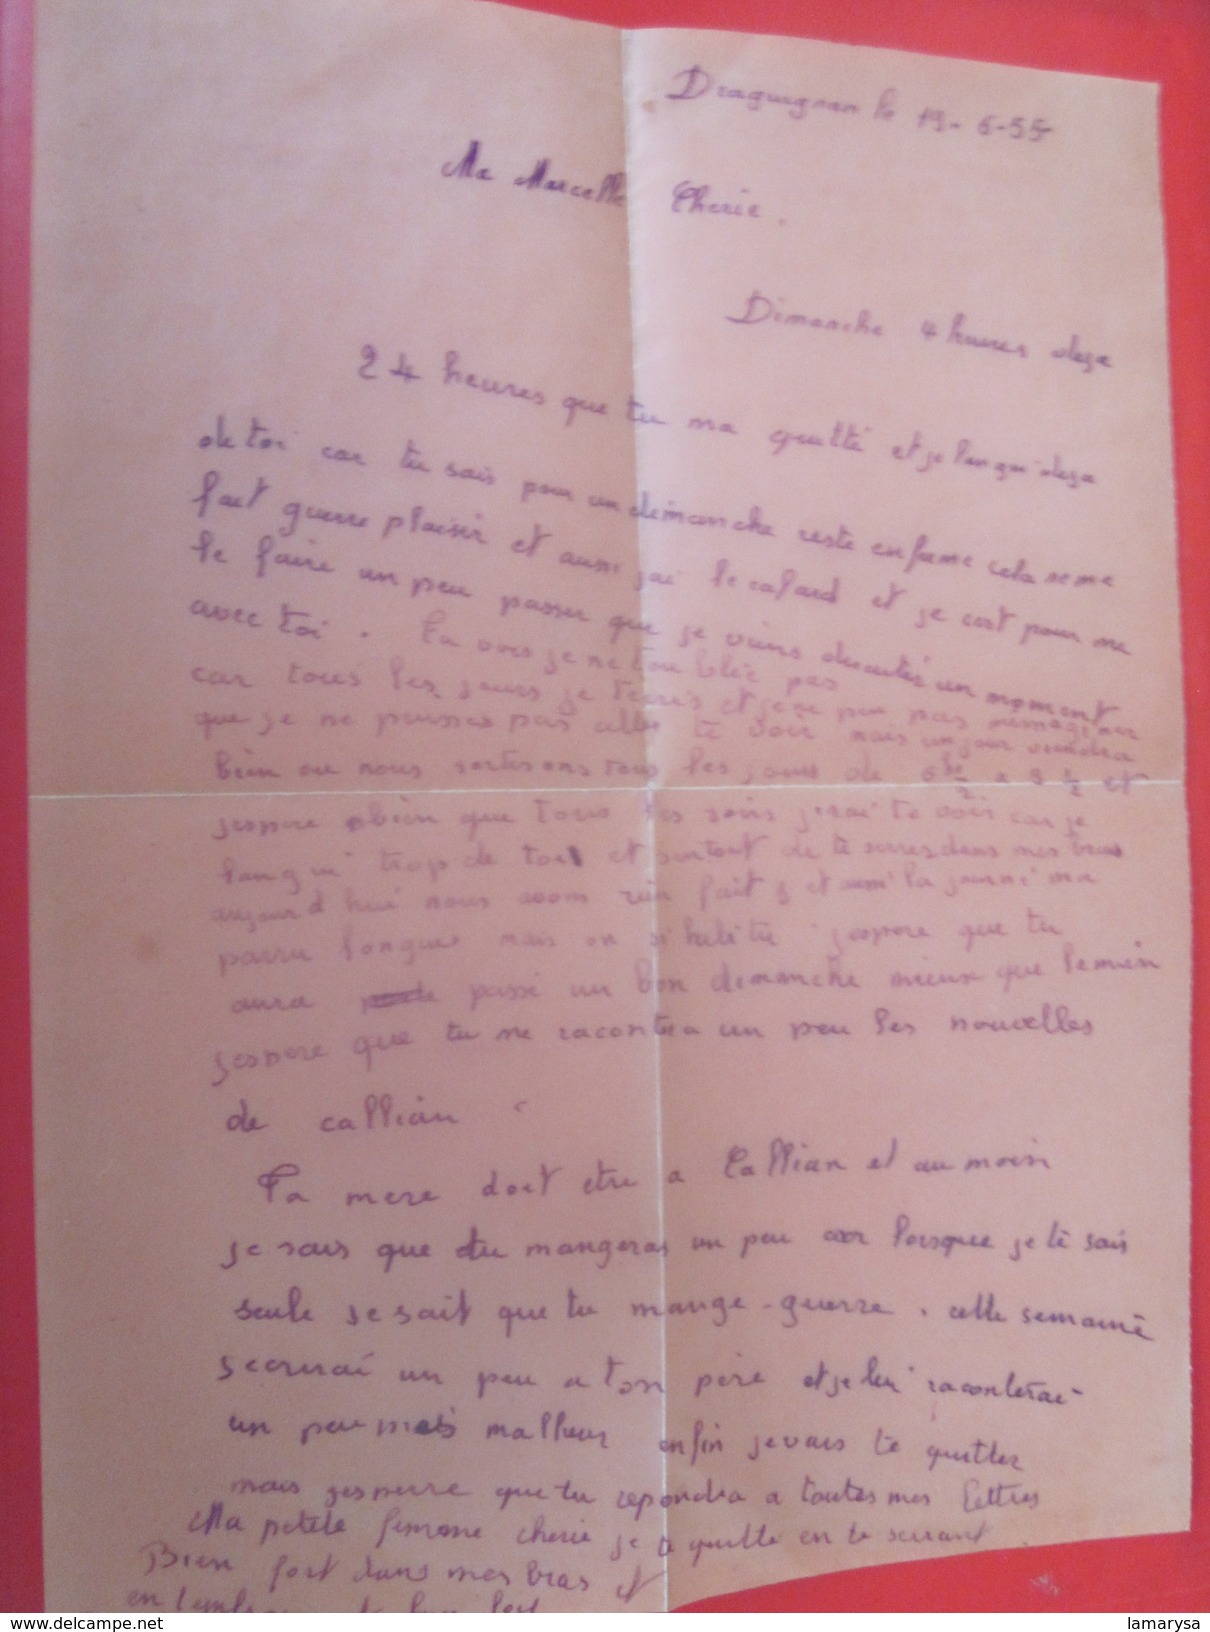 Draguignan le 19-6-55
Ma Marcelle Cherie.
Dimanche 4 heures deja
24 heures que tu ma quitté et je langui deja
de toi car tu sais pour un dimanche reste enfermé cela ne me
fait guerre plaisir et aussi jai le cafard et je cest pour me
le faire un peu passer que je viens discuter un moment
avec toi. Tu vois je ne toublie pas
car tous les jours je tecris et je ne peu pas mimaginer
que je ne puisses pas aller te voir mais un jour viendra
bien ou nous sortirons tous les jours de 6 a 8 ½ et
jespere bien que tous les soirs jirai te voir car je
langui trop de toi et surtout de te serrer dans mes bras
aujourd hui nous avons rien fait et aussi la journé ma
parru longue mais on si habitu jespere que tu
aura passé un bon dimanche mieux que le mien
jespere que tu me racontra un peu les nouvelles
de callian
Ta mere doit etre a Callian et au moin
je sais que tu mangeras un peu car lorsque je te sais
seule je sait que tu mange guerre. cette semaine
jecrirai un peu a ton père et je lui raconterai
un peu mes malheur enfin je vais te quitter
mais jesperre que tu repondra a toutes mes lettres
Ma petite femme cherie je te quitte en te serrant
Bien fort dans mes bras et
delcampe.net
lamarysa